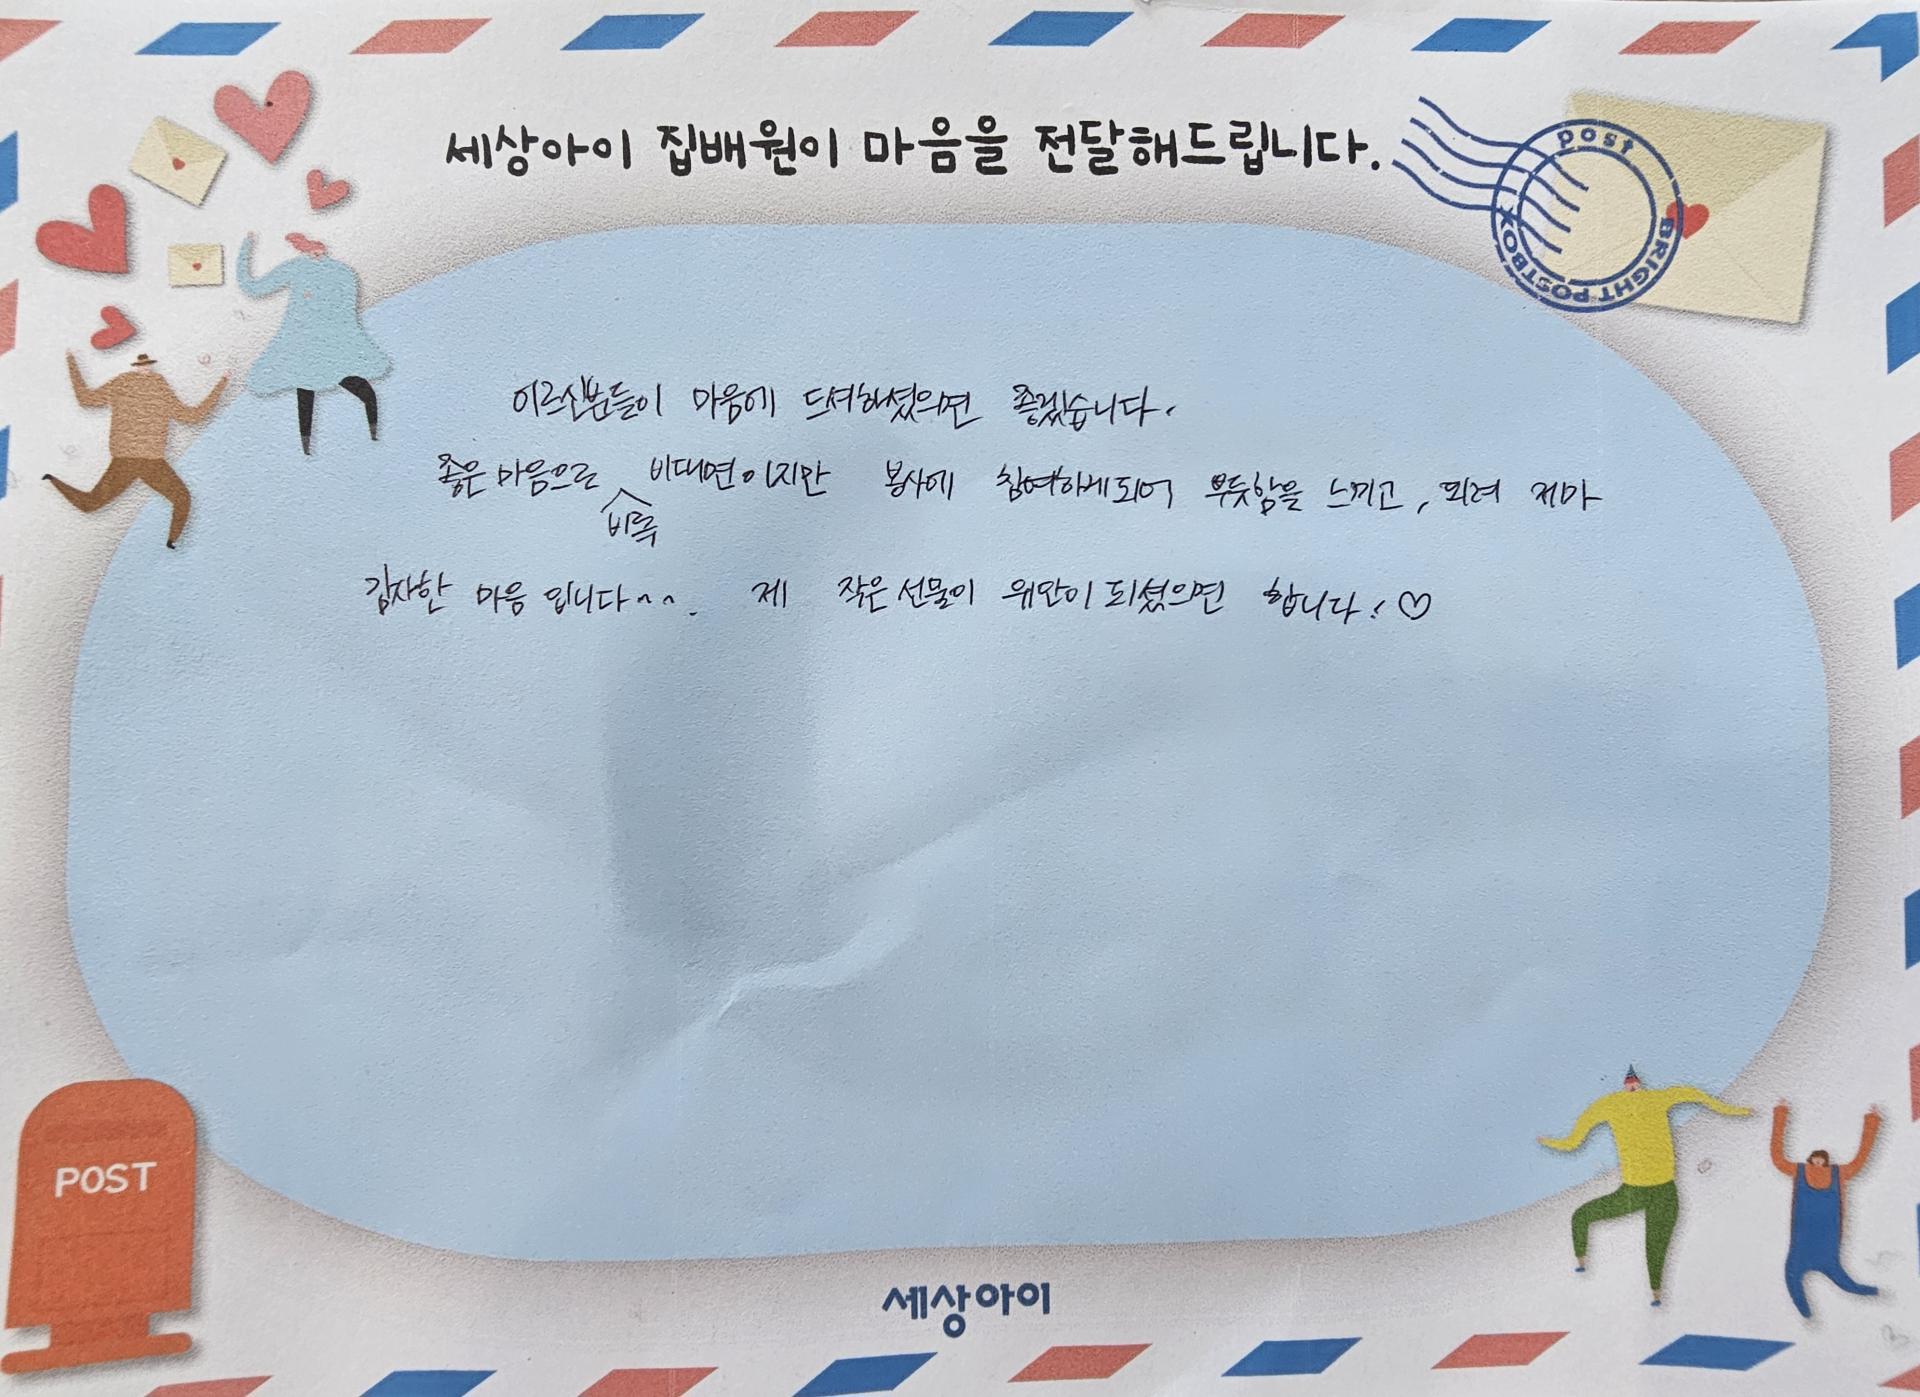 세상아이 집배원이 마음을 전달해드립니다.
post
BRIGHT POSTBOX
어르신분들이 마음에 드셔하셨으면 좋겠습니다.
좋은 마음으로 비록 비대면이지만 봉사에 참여하게되어 뿌듯함을 느끼고, 되려 제마
감사한 마음 입니다^^. 제 작은 선물이 위안이 되셨으면 합니다. ♡
POST
세상아이